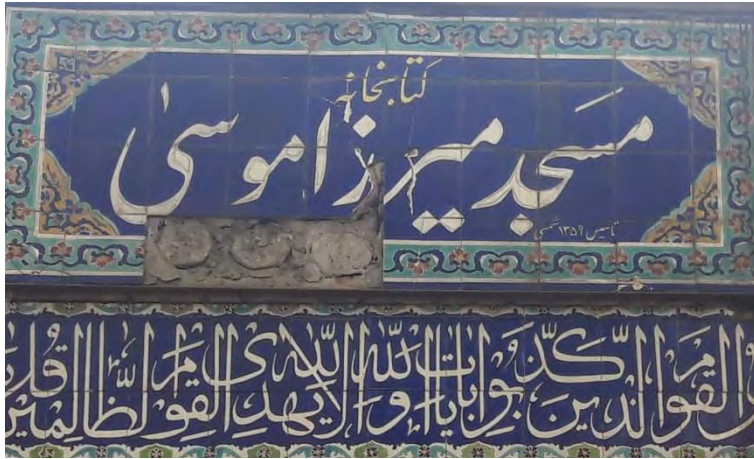 کتابخانه
مسجد میرزا موسی
تاسیس ۱۳۵۹ شمسی
القوم الذین کذّبوا بایات اللّه واللّه لایهدی القوم الظّالمین